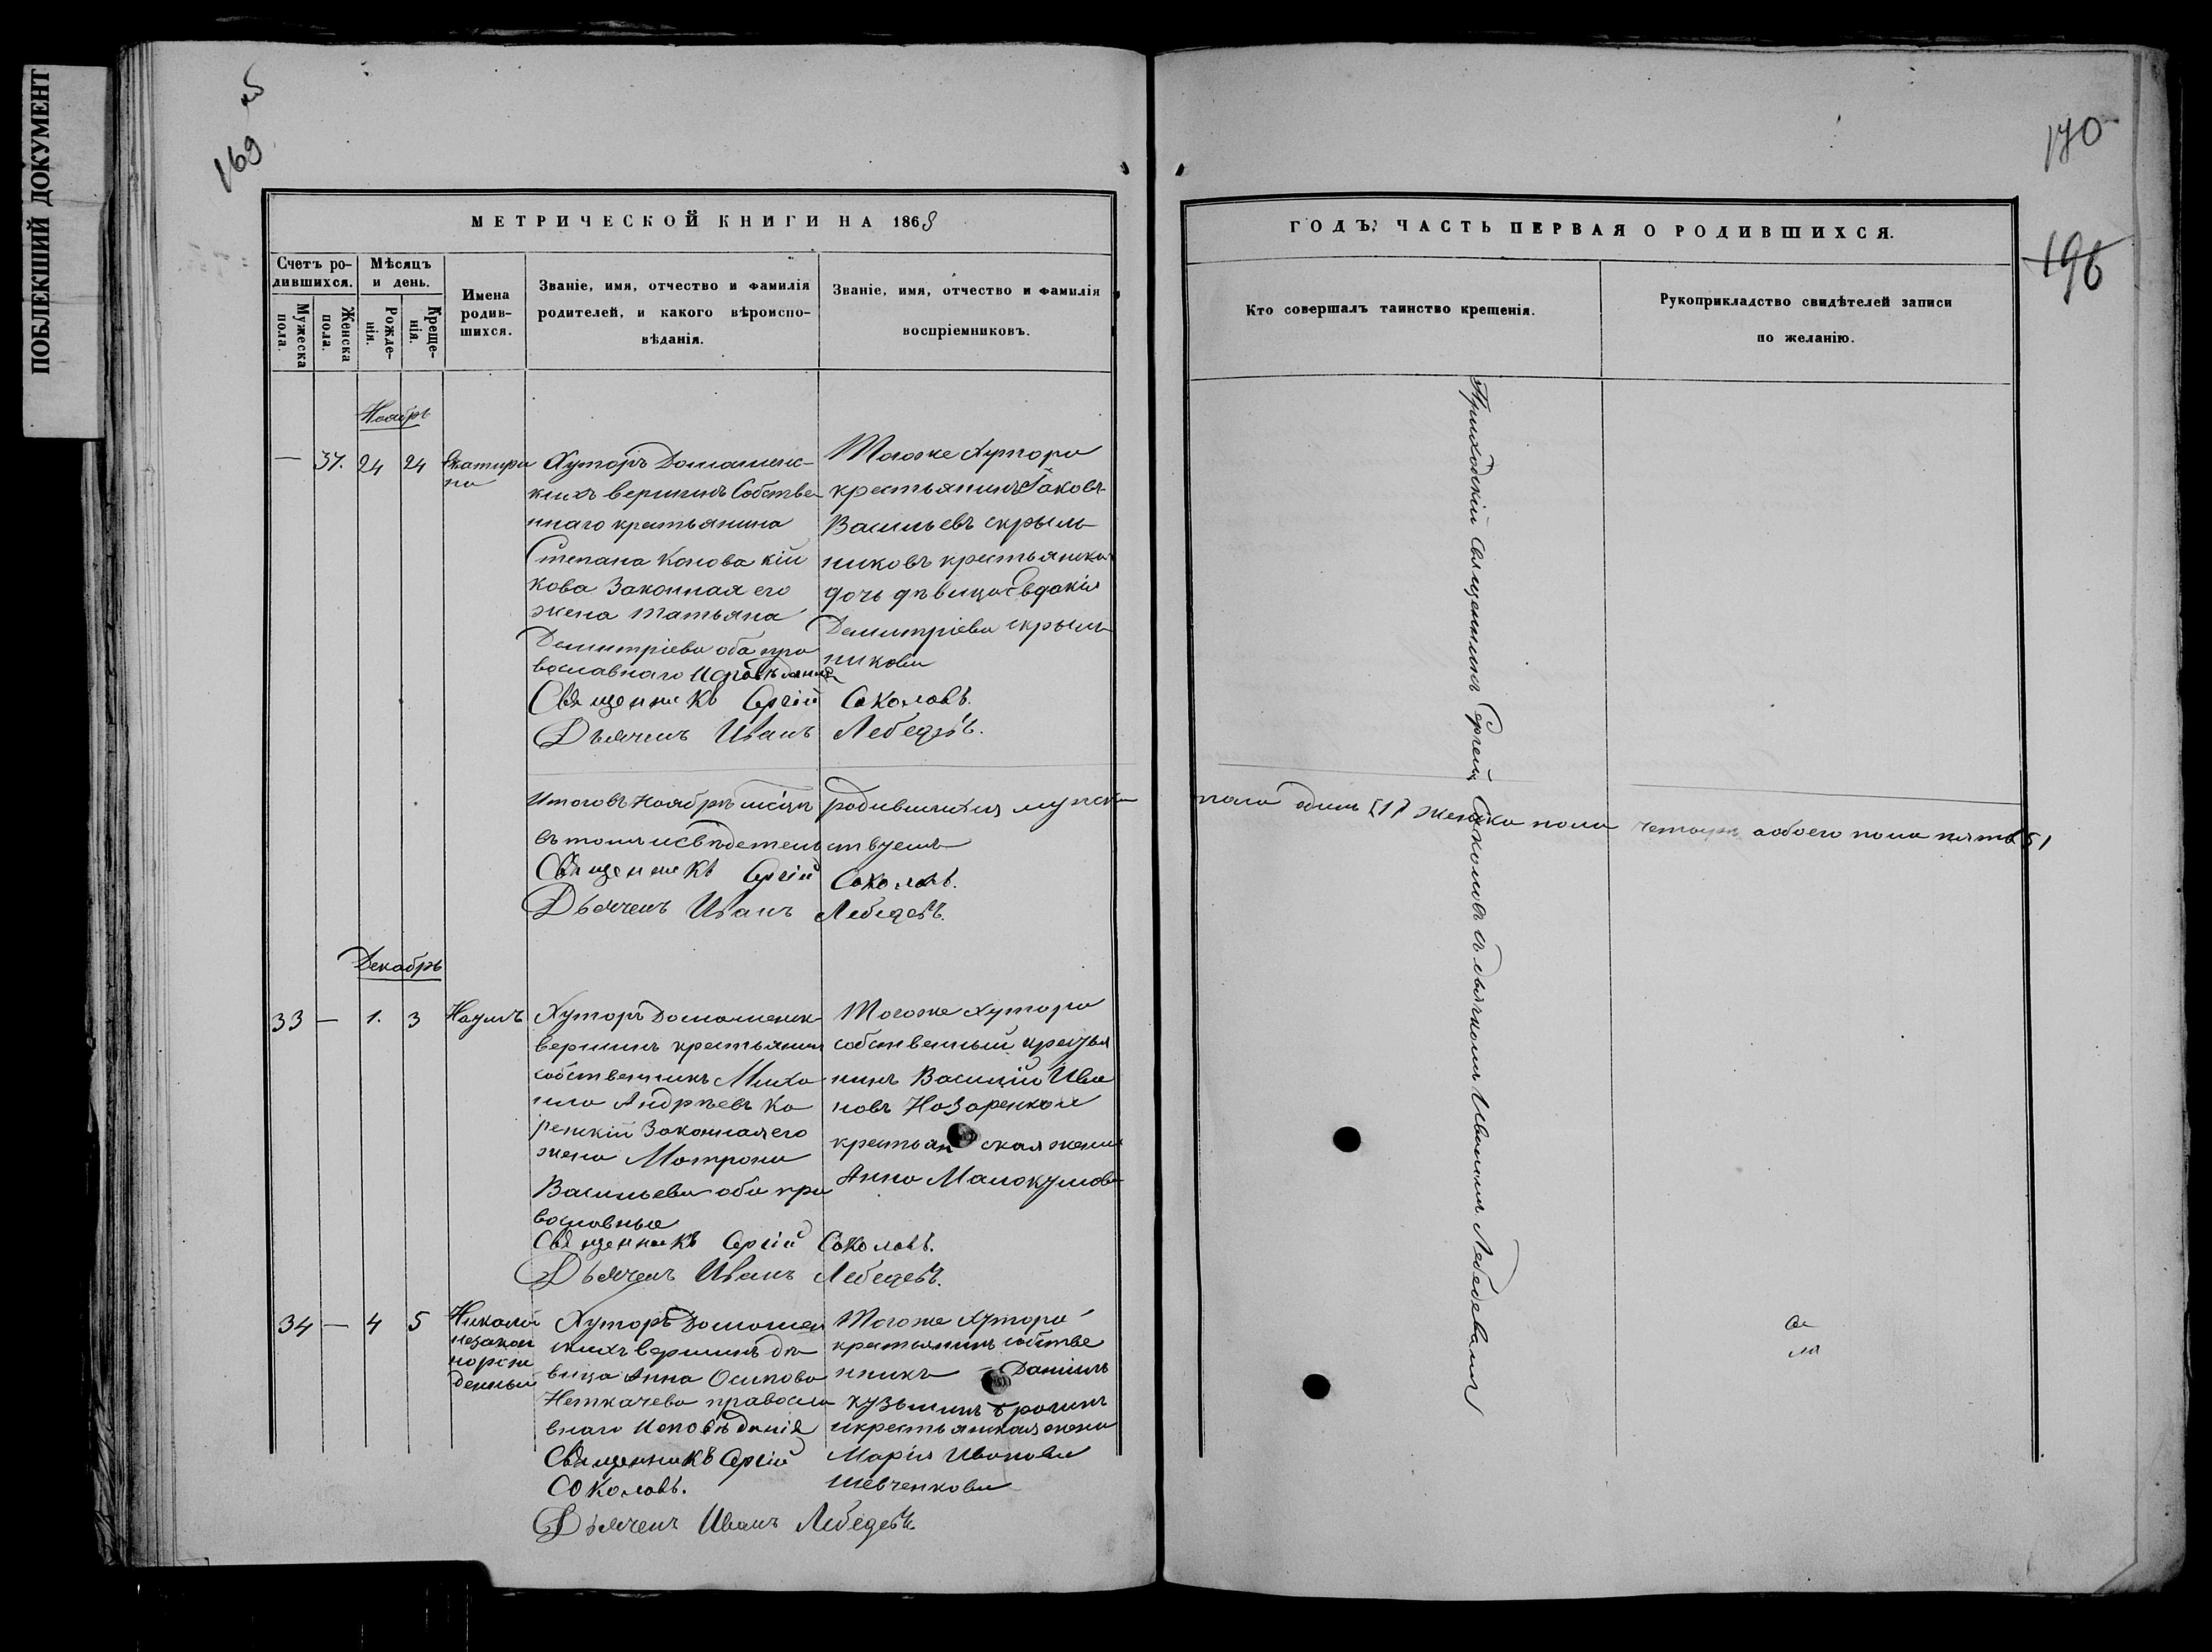 ПОБЛЕКШИЙ ДОКУМЕНТ
169
170
196
МЕТРИЧЕСКОЙ КНИГИ НА 1868
Счетъ ро-
дившихся.
Мужеска
пола.
Женска
пола.
Мѣсяцъ
и день.
Рожде-
нія.
Креще-
нія.
Имена
родив-
шихся.
Званіе, имя, отчество и фамилія
родителей, и какого вѣроиспо-
вѣданія.
Званіе, имя, отчество и фамилія
воспріемниковъ.
Ноябрь
— 37. 24 24
Екатери
на
Хуторъ Домашенс-
кихъ вершинъ Собстве
ннаго крестьянина
Степана
кова Законная его
жена Татьяна
Димитріева оба пра
вославнаго Исповѣданія
Священникъ Сергій Соколовъ.
Дьячекъ Иванъ Лебедевъ.
Тогоже Хутора
крестьянинъ Іаковъ
Васильевъ скрыль
никовъ крестьянска
дочь дѣвица Евдокія
Димитріева скрыль
никова
Итого въ Ноябрѣ мѣсяцѣ родившихся мужска пола одинъ [1] женска пола четыре а обоего пола пять 5
въ томъ и свѣдетельствуемъ
Священникъ Сергій Соколовъ.
Дьячекъ Иванъ Лебедевъ.
Декабрь
33 — 1. 3 Наумъ
Хуторъ Домашенск
вершинъ крестьянинъ
собственникъ Миха
ила Андрѣевъ Ко
ренскій Законная его
жена Матрона
Васильева оба пра
вославные
Священникъ Сергій Соколовъ.
Дьячекъ Иванъ Лебедевъ.
Тогоже Хутора
собственный крестья
нинъ Василій Ива
новъ Назаренков
крестьянская жена
Анна Малокумова
34 — 4 5
Николай
незакон
норож
денный
Хуторъ Домашен
скихъ вершинъ дѣ
вица Анна Осипова
Неткачева правосла
внаго Исповѣданія
Священникъ Сергій
Соколовъ.
Дьячекъ Иванъ Лебедевъ.
Тогоже Хутора
крестьянинъ собстве
нникъ Даніилъ
Кузьминъ
и крестьянская жена
Марія Иванова
Шевченкова
ГОДЪ, ЧАСТЬ ПЕРВАЯ О РОДИВШИХСЯ.
Кто совершалъ таинство крещенія.
Рукоприкладство свидѣтелей записи
по желанію.
Приходскій священникъ Сергей Соколовъ съ дьячкомъ Иваномъ Лебедевымъ